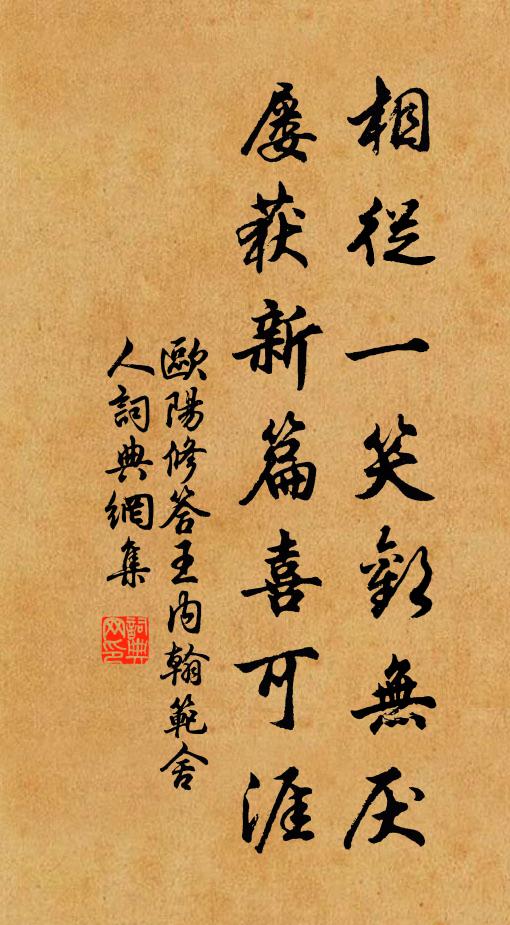 相從一笑歡無厌
屡获新篇喜可涯
歐陽修答王内翰範舍
人詞典網集
詞典网印